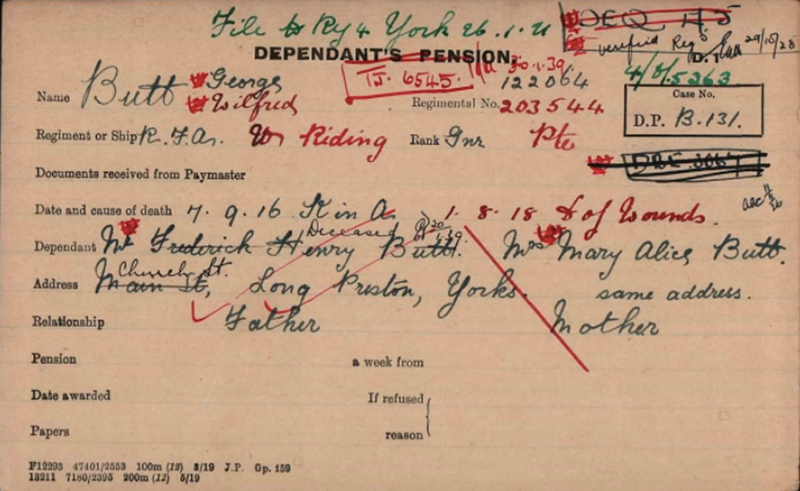 File to Ry 4 York 26.1.21
DEPENDANT'S PENSION.
verified Regs 29/10/28
D.1
IJ. 6545.
30.1.30
122064
4/D/5263
Name Butt George
Wilfred
Regimental No. 203544
Case No.
D.P. B.131.
Regiment or Ship R.F.A. W Riding Rank Gnr Pte
Documents received from Paymaster
Date and cause of death 7.9.16 K in A. 1.8.18 D of Wounds.
Deceased
Dependant Mr Frederick Henry Butt. Mrs Mary Alice Butt.
Church St.
Address Main St, Long Preston, Yorks. same address.
Relationship Father Mother
Pension a week from
Date awarded If refused
Papers reason
F12293 47401/2553 100m (12) 3/19 J.P. Gp. 159
13211 7180/2395 200m (12) 5/19